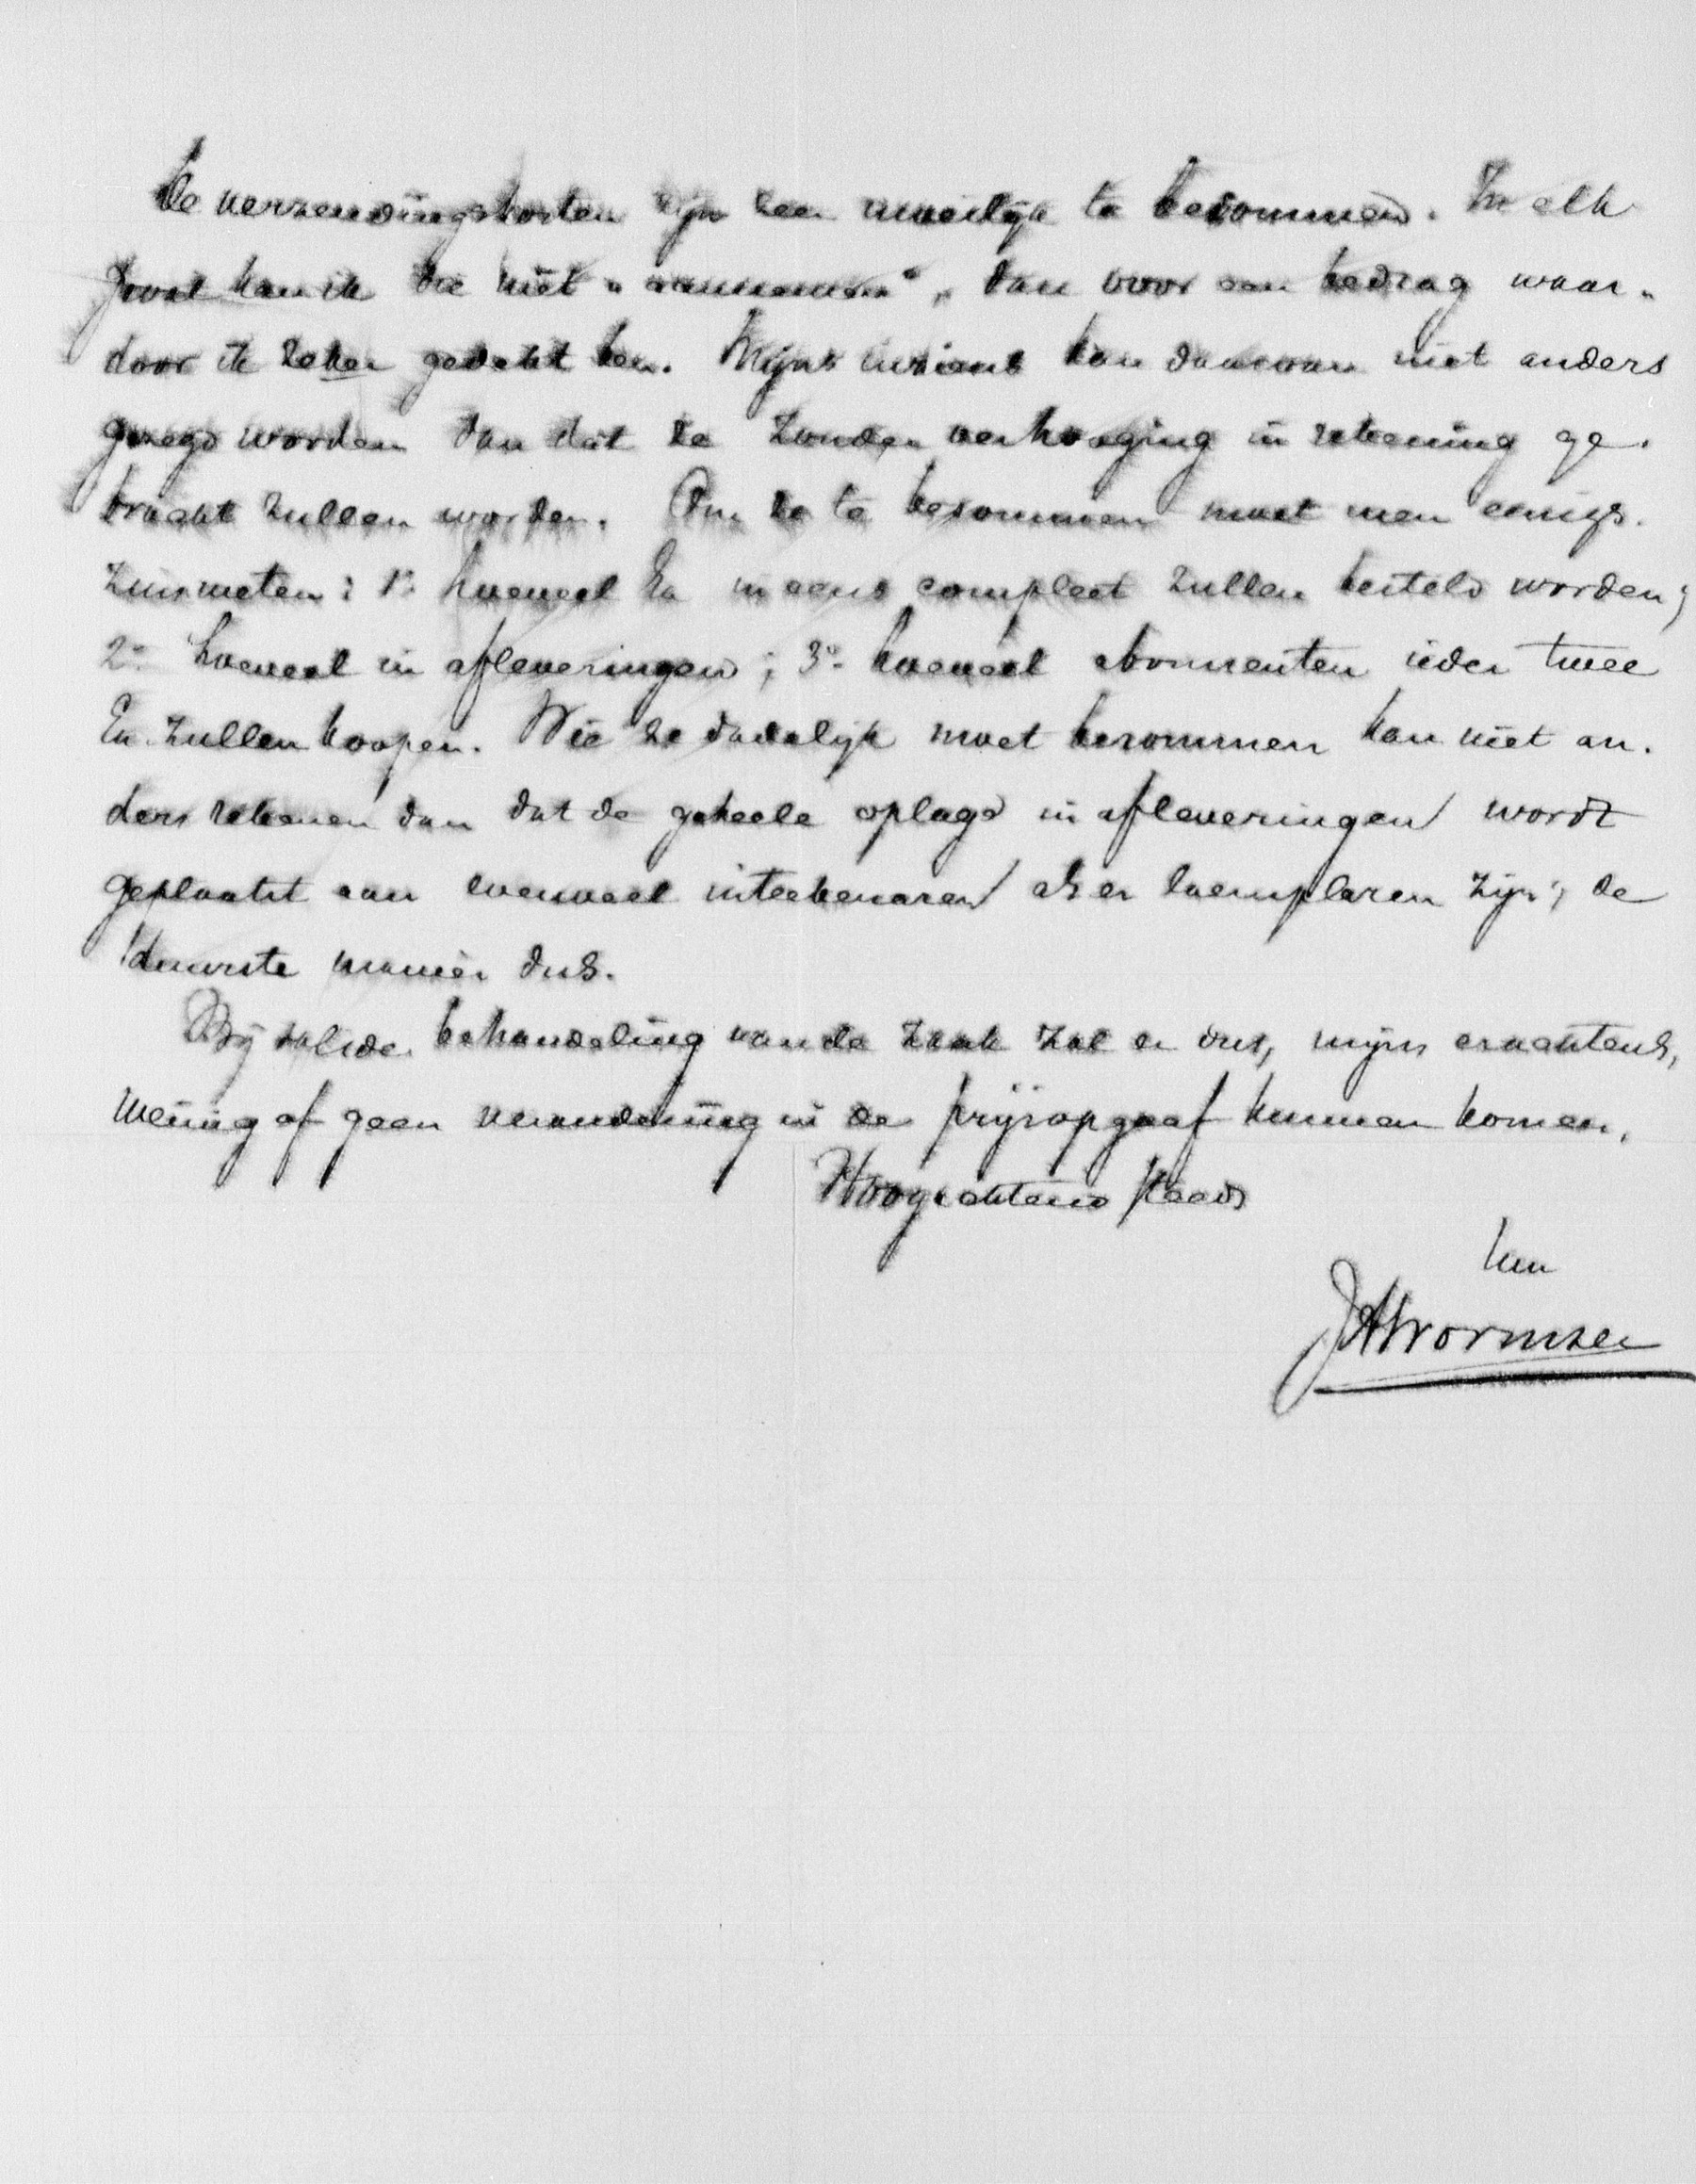 De verzendingskosten zijn zeer moeilijk te besommen. In elk
geval kan ik die niet „aannemen", dan voor een bedrag waar-
door ik zeker gedekt ben. Mijns inziens kan daarvan niet anders
gezegd worden dan dat ze zonder verhooging in rekening ge-
bracht zullen worden. Om ze te besommen moet men eenigs-
zins weten: 1o hoeveel Ex ineens compleet zullen besteld worden;
2o hoeveel in afleveringen; 3o hoeveel abonnenten ieder twee
Ex. zullen koopen. Wie ze dadelijk moet besommen kan niet an-
ders rekenen dan dat de geheele oplage in afleveringen wordt
geplaatst aan evenveel inteekenaren als er exemplaren zijn; de
duurste manier dus.
Bij solide behandeling van de zaak zal er dus, mijns erachtens,
weinig of geen verandering in de prijsopgaaf kunnen komen.
Hoogachtend steeds
Uw
JAWormser